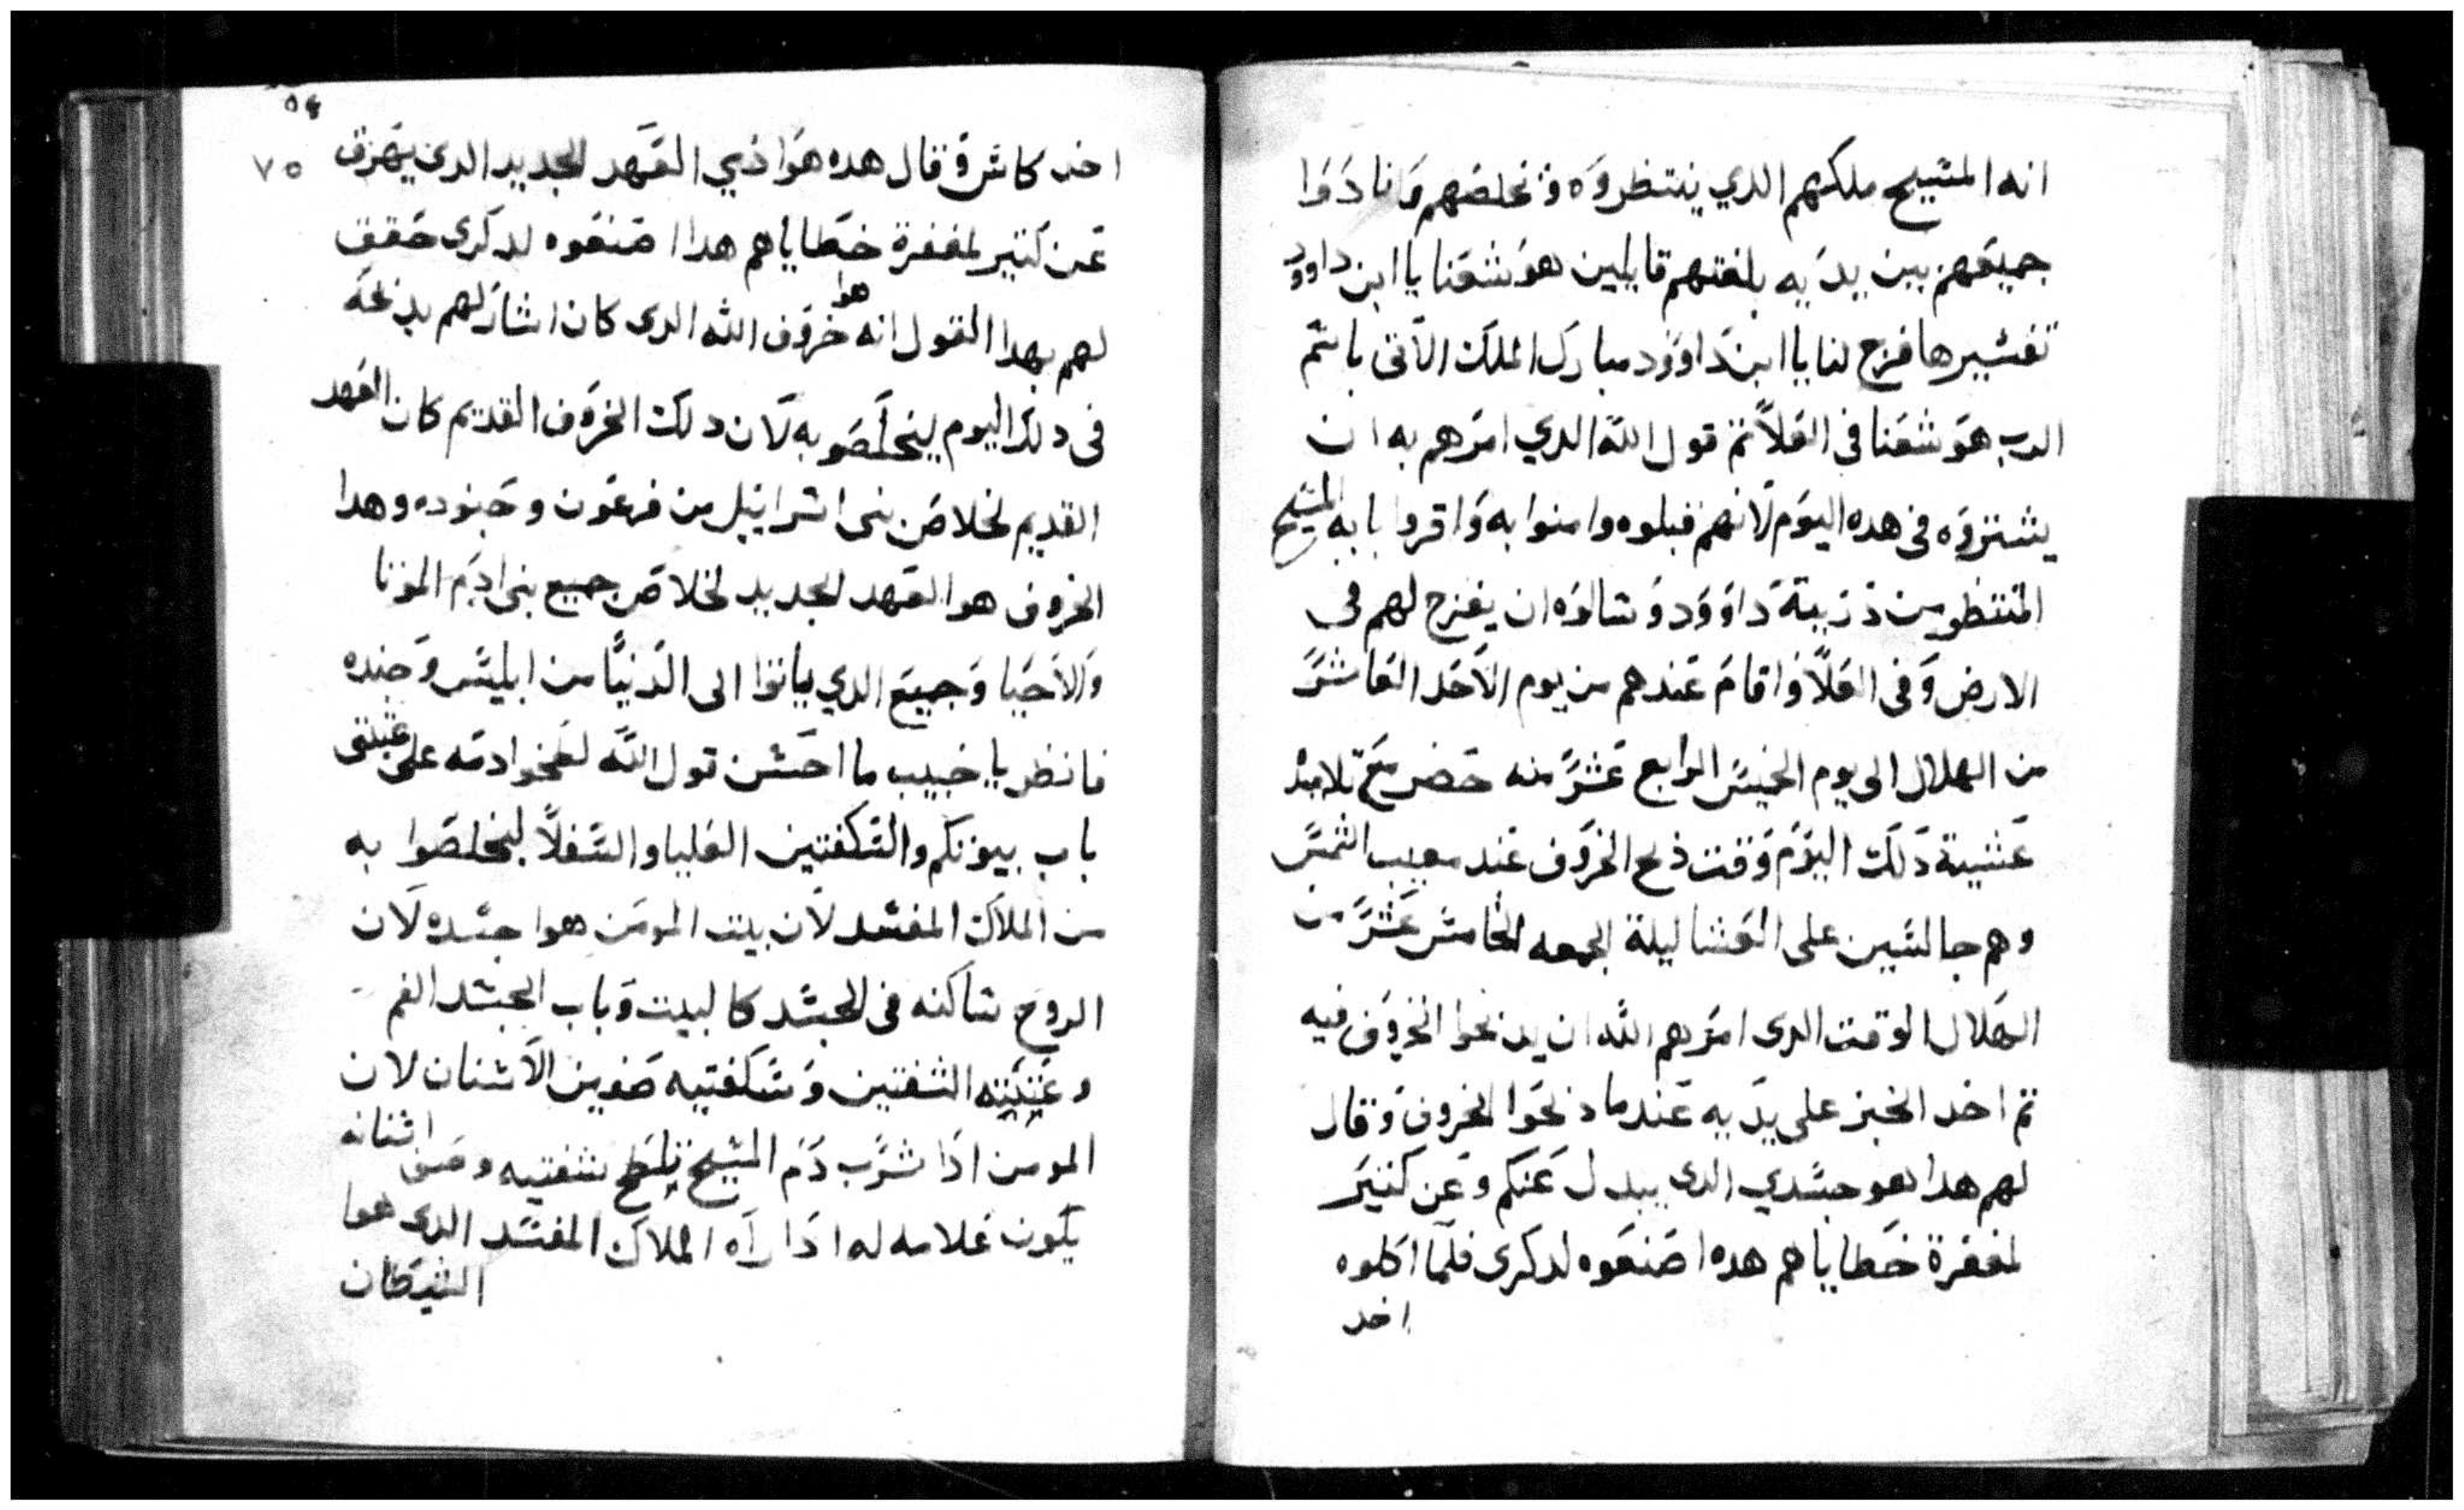 انه المسيح ملكهم الدي ينتظروه وتخلصهم ونادوا
جميعهم بين يديه بلغتهم قايلين هوشعنا يا ابن داوود
تفسيرها فرج لنا يا ابن داوود مبارك الملك الآتى باسم
الرب هوشعنا فى العلا تم قول الله الدي امرهم به ان
يشتروه فى هده اليوم لانهم قبلوه وامنوا به واقروا بابه المسيح
المنتظر من ذرية داوود وسالوه ان يفرج لهم فى
الارض وفى العلا واقام عندهم من يوم الاحد العاشر
من الهلال الى يوم الخميس الرابع عشر منه حضر مع تلاميد
عشية دلك اليوم وقت ذبح الخروف عند مغيب الشمس
وهم جالسين على العشا ليلة الجمعه الخامس عشر من
الهلال الوقت الدى امرهم الله ان يذبحوا الخروف فيه
تم اخد الخبز على يديه عندما ذبحوا الخروف وقال
لهم هدا هو جسدي الدى يبدل عنكم وعن كتير
لمغفرة خطاياهم هده اصنعوه لدكرى فلما اكلوه
اخد
٥٤
٧٥
اخد كاس وقال هده هوا ذمي العهد الجديد الدى يهرق
عن كتير لمغفرة خطاياهم هدا اصنعوه لدكرى حقق
لهم بهدا القول انه هوا خروف الله الدى كان اشار لهم بذبحه
فى دلك اليوم ليخلصو به لان دلك الخروف القديم كان العهد
القديم لخلاص بنى اسراييل من فرعون وجنوده وهدا
الخروف هو العهد الجديد لخلاص جميع بنى ادم الموتا
والاحيا وجميع الدي ياتوا الى الدنيا من ابليس وجنده
فانظر يا حبيب ما احسن قول الله لطخوا دمه على عتبتى
باب بيوتكم والسكفتين العليا والسفلا ليخلصوا به
من الملاك المفسد لان بيت المومن هوا جسده لان
الروح ساكنه فى الجسد كالبيت وباب الجسد الفم
وعتبتيه الشفتين وسكفتيه صفين الاسنان لان
المومن اذا شرب دم المسيح تلطخ شفتيه وصفى اسنانه
يكون علامه له اذا راه الملاك المفسد الدى هوا
الشيطان